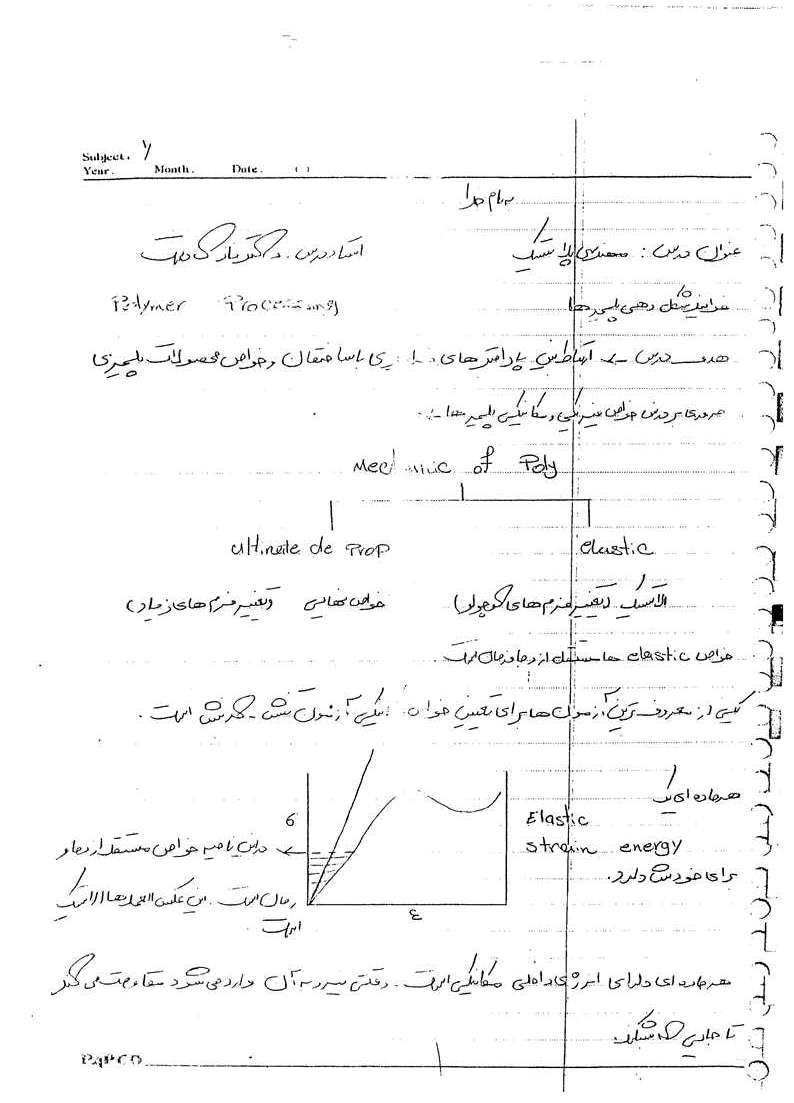 Subject. ۱
Year. Month. Date. ( )
به نام خدا
عنوان درس : مهندسی پلاستیک استاد درس . دکتر
فرایند شکل دهی پلیمرها Polymer Processing
هدف درس ← ارتباط بین پارامترهای با ساختمان و خواص محصولات پلیمری
مروری بر درس خواص فیزیکی و مکانیکی پلیمرها :
Mechanic of Poly
ultimate de Prop elastic
الاستیک (تغییر فرم های کوچک) خواص نهایی (تغییر فرم های زیاد)
خواص elastic ها مستقل از دما و زمان است.
یکی از معروف ترین آزمون ها برای تعیین خواص آزمون تنش - کرنش است.
هر ماده ای یک
Elastic
strain energy
برای خودش دارد.
σ
ε
در این ناحیه خواص مستقل از دما و
زمان است. این عکس العمل ها الاستیک
است
هر ماده ای دارای انرژی داخلی مکانیکی است. وقتی نیرو به آن وارد می شود مقاومت می کند
تا جایی که بشکند.
PAPCO